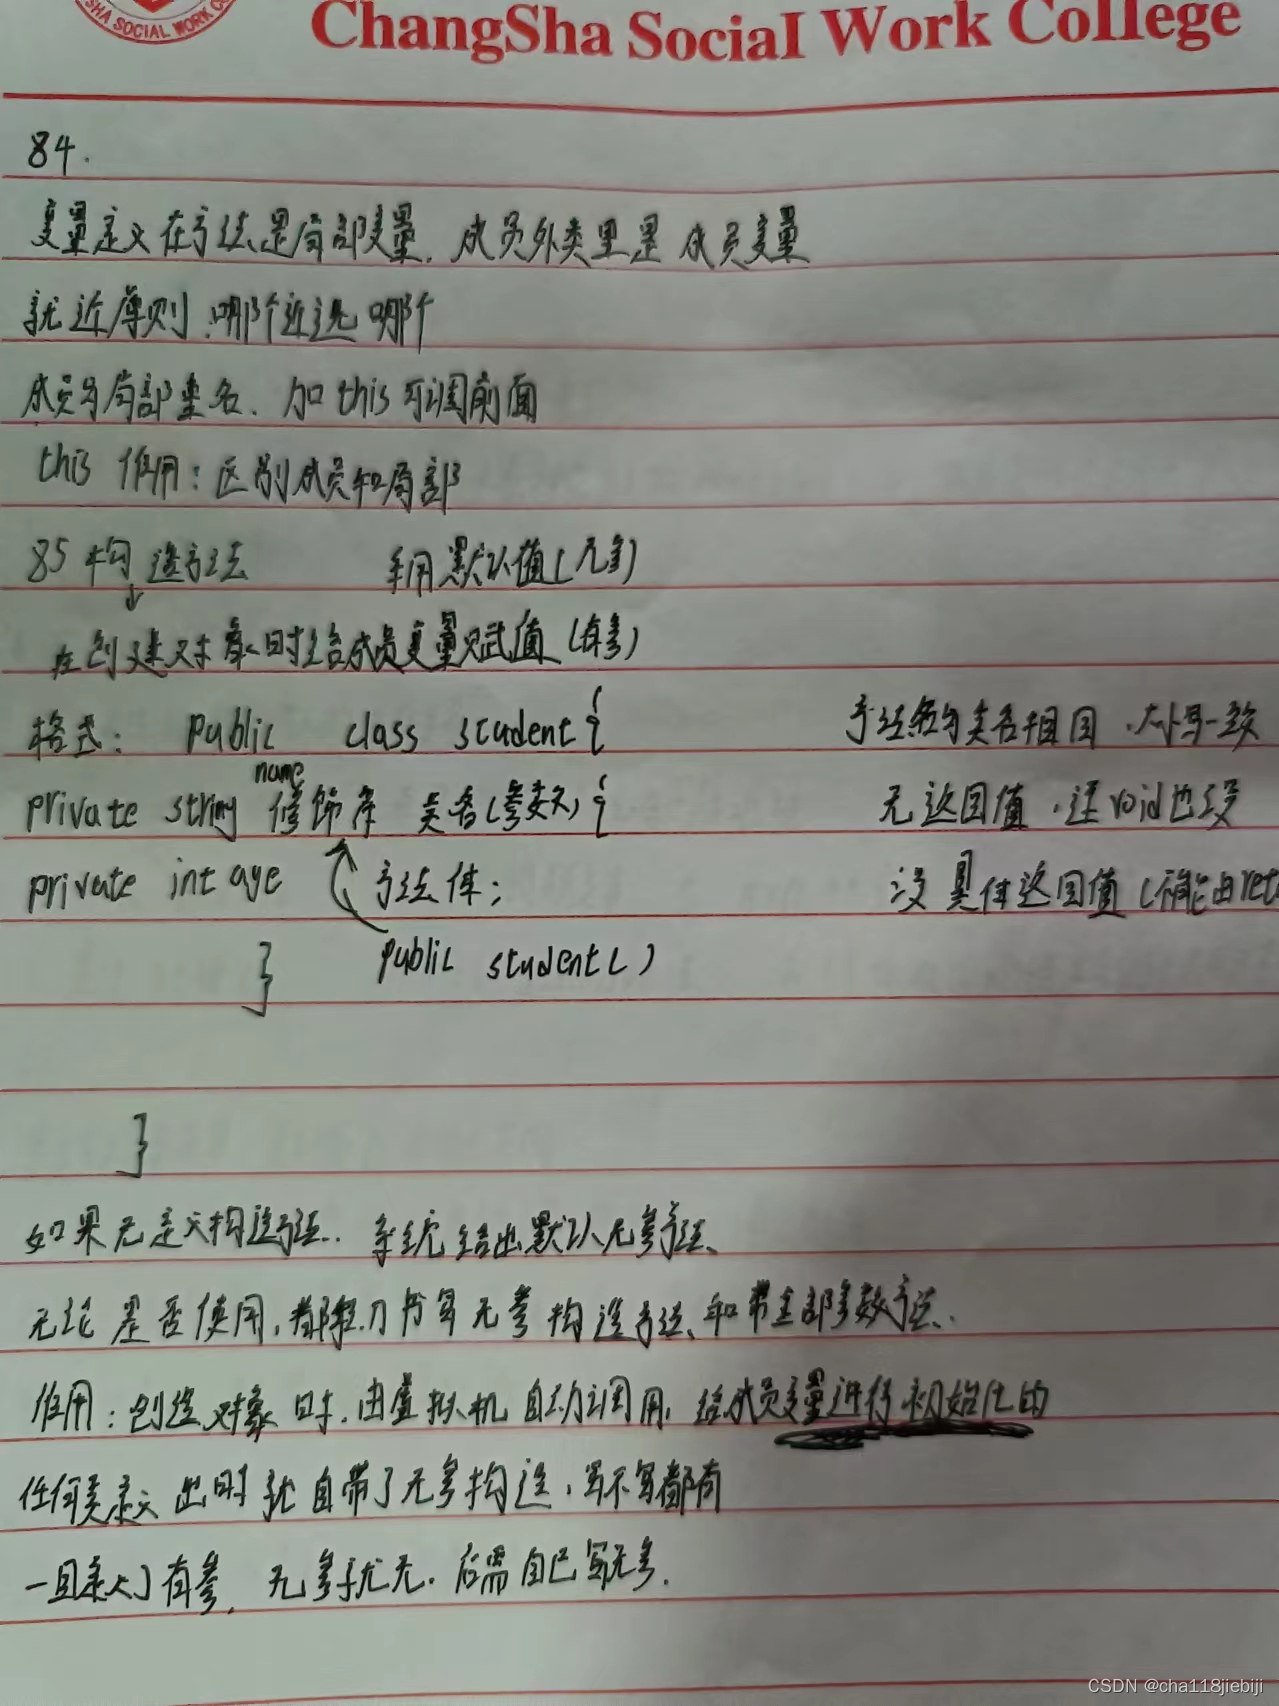 SHA SOCIAL WORK CO
ChangSha Social Work College
84.
变量定义在方法是局部变量. 成员外类里是 成员变量
就近原则.哪个近选哪个
成员与局部重名. 加this可调前面
this 作用: 区别成员和局部
85 构造方法 采用默认值(无参)
在创建对象时给成员变量赋值(有参)
格式: Public class student { 方法名与类名相同.大小写一致
name
private string 修饰符 类名(参数){ 无返回值.连void也没
private int age 方法体; 没具体返回值(不能由ret
} public student()
}
如果无定义构造方法.. 系统给出默认无参方法、
无论是否使用,都 书写无参构造方法、和带全部参数方法..
作用: 创造对象时.由虚拟机自动调用,给成员变量进行初始化的
任何类定义出时就自带了无参构造,写不写都有
一旦定义了有参, 无参就无. 后需自己写无参.
CSDN @cha118jiebiji